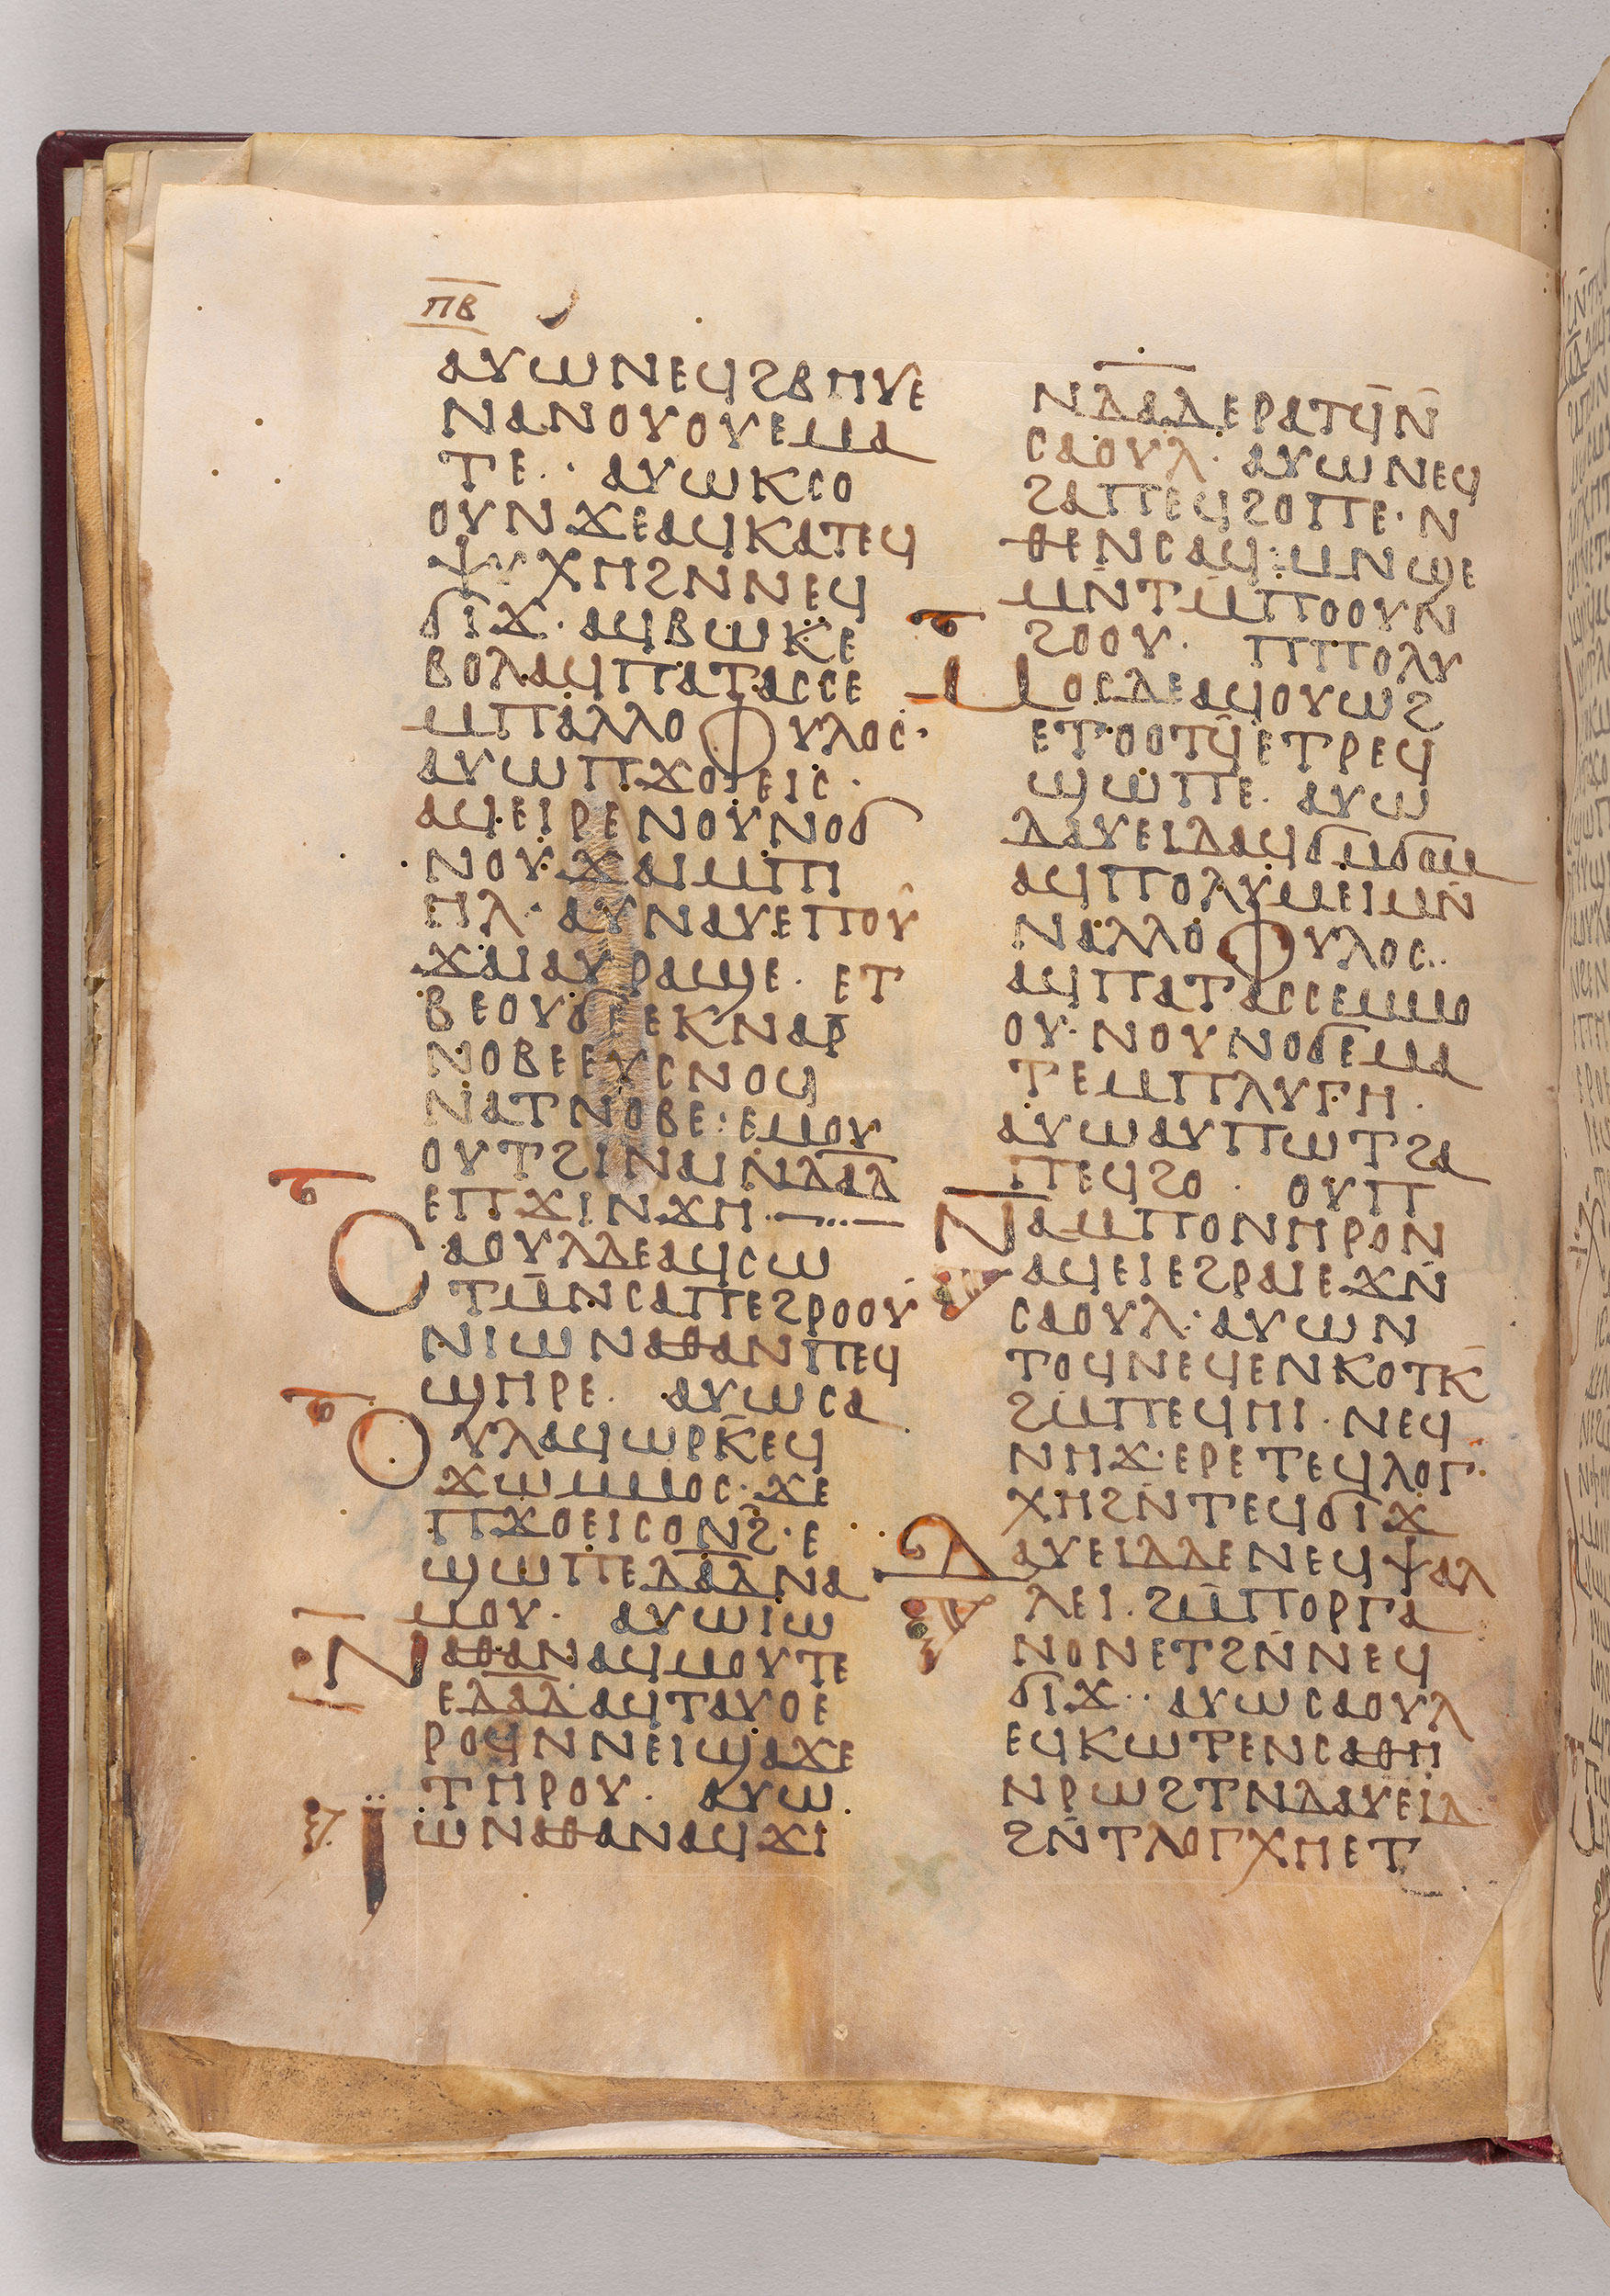 ⲡ̅ⲃ̅
ⲁⲩⲱⲛⲉϥϩⲃⲏⲩⲉ
ⲛⲁⲛⲟⲩⲟⲩⲉⲙⲁ
ⲧⲉ· ⲁⲩⲱⲕⲥⲟ
ⲟⲩⲛϫⲉⲁϥⲕⲁⲧⲉϥ
ⲯⲩⲭⲏϩⲛⲛⲉϥ
ϭⲓϫ· ⲁϥⲃⲱⲕⲉ
ⲃⲟⲗⲁϥⲡⲁⲧⲁⲥⲥⲉ
ⲙⲡⲁⲗⲗⲟⲫⲩⲗⲟⲥ·
ⲁⲩⲱⲡϫⲟⲉⲓⲥ·
ⲁϥⲉⲓⲣⲉⲛⲟⲩⲛⲟϭ
ⲛⲟⲩϫⲁⲓⲙⲡⲓ
ⲏⲗ· ⲁⲩⲛⲁⲩⲉⲡⲟⲩ
ϫⲁⲓⲁⲩⲣⲁϣⲉ· ⲉⲧ
ⲃⲉⲟⲩϭⲉⲉⲕⲛⲁⲣ̅
ⲛⲟⲃⲉⲉⲩⲥⲛⲟϥ
ⲛⲁⲧⲛⲟⲃⲉ:ⲉⲙⲟⲩ
ⲟⲩⲧϩⲓⲛⲁⲓⲛⲇⲁ̅ⲇ̅
ⲉⲡϫⲓⲛϫⲏ·—··—
Ⲥⲁⲟⲩⲗⲇⲉⲁϥⲥⲱ
ⲧⲙ̅ⲛⲥⲁⲡⲉϩⲣⲟⲟⲩ
ⲛⲓⲱⲛⲁⲑⲁⲛⲡⲉϥ
ϣⲏⲣⲉ· ⲁⲩⲱⲥⲁ
Ⲟⲩⲗⲁϥⲱⲣⲕ̅ⲉϥ
ϫⲱⲙⲙⲟⲥ· ϫⲉ
ⲡϫⲟⲉⲓⲥⲟⲛϩ̅·ⲉ
ϣⲱⲡⲉⲇⲁ̅ⲇ̅ⲛⲁ
ⲙⲟⲩ· ⲁⲩⲱⲓⲱ
Ⲛⲁⲑⲁⲛⲁϥⲙⲟⲩⲧⲉ
ⲉⲇⲁ̅ⲇ̅ⲁϥⲧⲁⲩⲟⲉ
ⲣⲟϥⲛⲛⲉⲓϣⲁϫⲉ
ⲧⲏⲣⲟⲩ· ⲁⲩⲱ
Ⲓ̈ⲱⲛⲁⲑⲁⲛⲁϥϫⲓ
ⲛⲇⲁ̅ⲇⲉⲣⲁⲧϥ̅ⲛ̅
ⲥⲁⲟⲩⲗ· ⲁⲩⲱⲛⲉϥ
ϩⲁⲡⲉϥϩⲟⲡⲉ· ⲛ
ⲑⲉⲛⲥⲁϥ:ⲙⲛϣⲉ
ⲙⲛ̅ⲧⲙ̅ⲡⲟⲟⲩⲛ
ϩⲟⲟⲩ· ⲡⲡⲟⲗⲩ
Ⲙⲟⲥⲇⲉⲁϥⲟⲩⲱϩ
ⲉⲧⲟⲟⲧϥ̅ⲉⲧⲣⲉϥ
ϣⲱⲡⲉ· ⲁⲩⲱ
ⲇⲁⲩⲉⲓⲇⲁϥϭⲙϭⲟⲙ
ⲁϥⲡⲟⲗⲩⲙⲉⲓⲙⲛ̅
ⲛⲁⲗⲗⲟⲫⲩⲗⲟⲥ··
ⲁϥⲡⲁⲧⲁⲥⲥⲉⲙⲙⲟ
ⲟⲩ· ⲛⲟⲩⲛⲟϭⲉⲙⲁ
ⲧⲉⲙⲡⲗⲩⲅⲏ·
ⲁⲩⲱⲁⲩⲡⲱⲧϩⲁ
ⲡⲉϥϩⲟ· ⲟⲩⲡ̅
Ⲛⲁⲙⲡⲟⲛⲏⲣⲟⲛ
ⲁϥⲉⲓⲉϩⲣⲁⲓⲉϫⲛ̅
ⲥⲁⲟⲩⲗ· ⲁⲩⲱⲛ
ⲧⲟϥⲛⲉϥⲉⲛⲕⲟⲧⲕ̅
ϩⲙ̅ⲡⲉϥⲏⲓ· ⲛⲉϥ
ⲛⲏϫ·ⲉⲣⲉⲧⲉϥⲗⲟⲅ·
ⲭⲏϩⲛ̅ⲧⲉϥϭⲓϫ
Ⲇⲁⲩⲉⲓⲇⲇⲉⲛⲉϥⲯⲁⲗ
ⲗⲉⲓ· ϩⲙ̅ⲡⲟⲣⲅⲁ
ⲛⲟⲛⲉⲧϩⲛ̅ⲛⲉϥ
ϭⲓϫ·· ⲁⲩⲱⲥⲁⲟⲩⲗ
ⲉϥⲕⲱⲧⲉⲛⲥⲁⲑⲏ
ⲛⲣⲱϩⲧⲛⲇⲁⲩⲉⲓⲇ
ϩⲛ̅ⲧⲗⲟⲅⲭⲏⲉⲧ